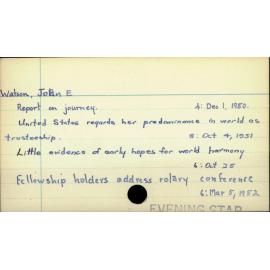 Watson, John E
Report on journey. 4: Dec 1, 1950.
United States regards her predominance in world as
trusteeship. 8: Oct 4, 1951
Little evidence of early hopes for world harmony
6: Oct 25
Fellowship holders address rotary conference
6: Mar 5, 1952
EVENING STAR